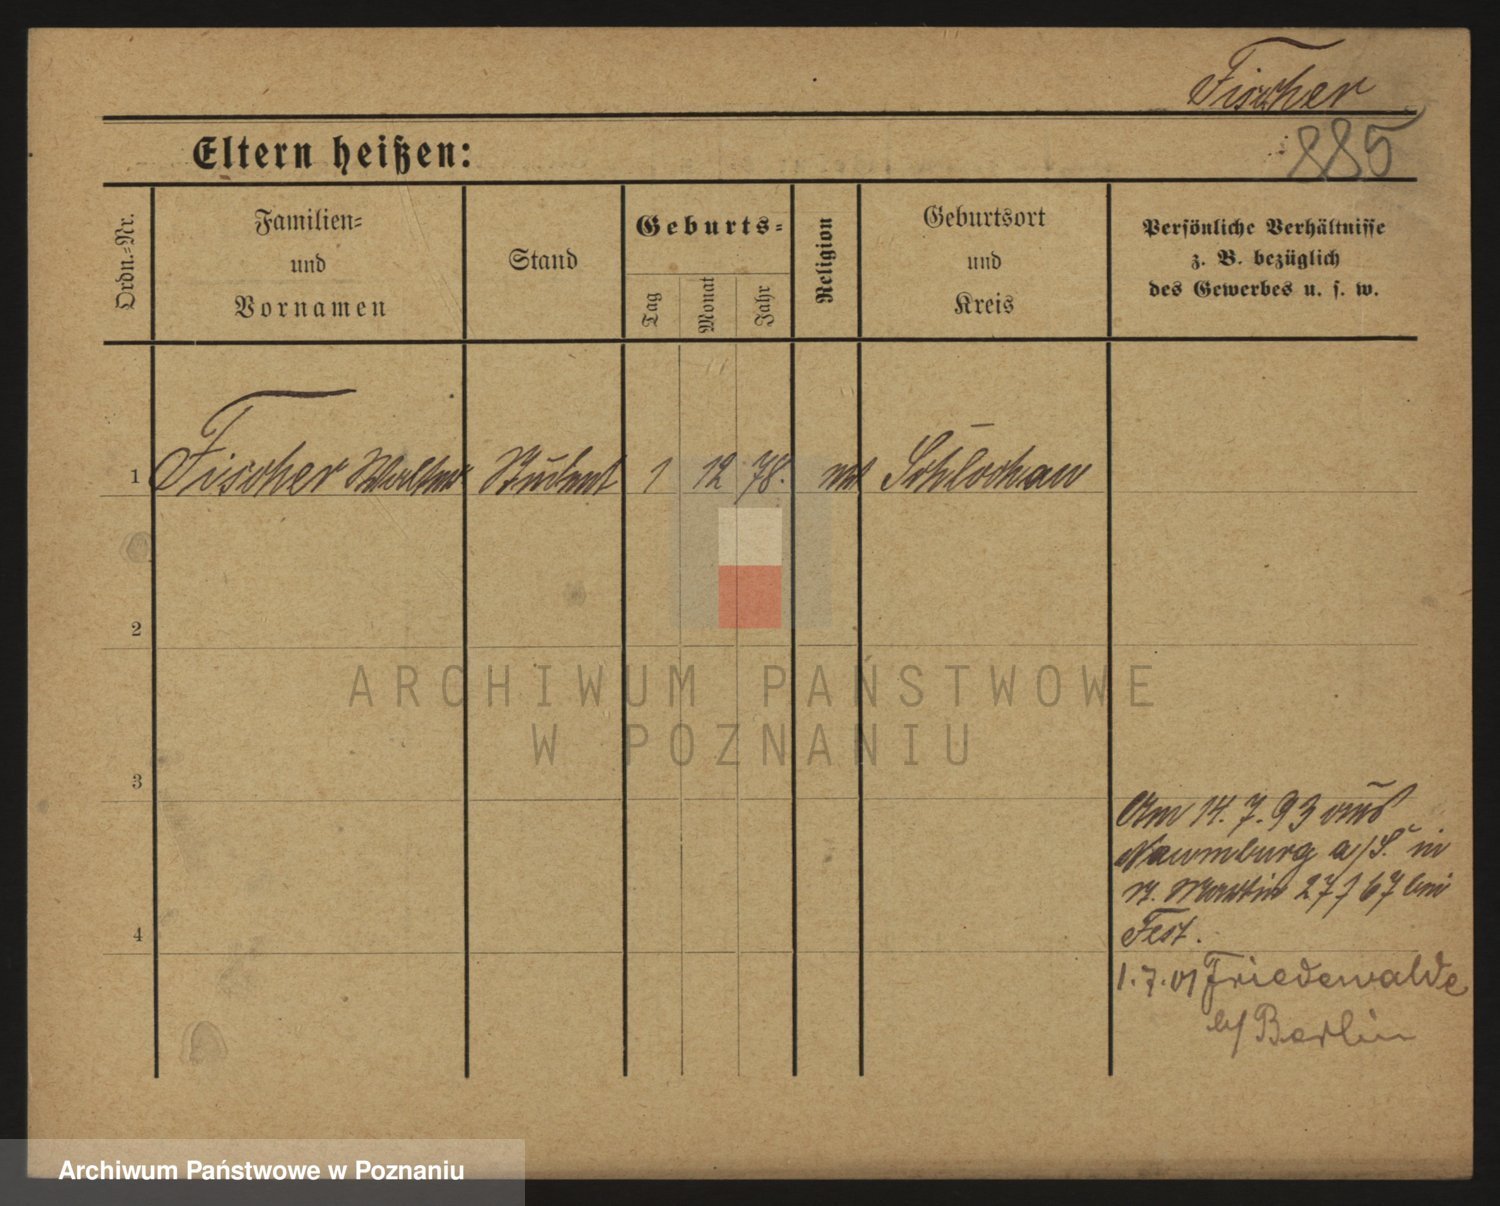 Fischer
885
Eltern heißen:
Ordn.-Nr.
Familien-
und
Vornamen
Stand
Geburts-
Tag
Monat
Jahr
Religion
Geburtsort
und
Kreis
Persönliche Verhältnisse
z. B. bezüglich
des Gewerbes u. s. w.
1 Fischer Walter Student 1 12 78. Schlochau
2
3
4
Am 14. 7. 93 aus
Naumburg a/S. in
St. Martin 27 / 67 bei
Fest.
1. 7. 01 Friedewalde
b/ Berlin
ARCHIWUM PAŃSTWOWE
W POZNANIU
Archiwum Państwowe w Poznaniu